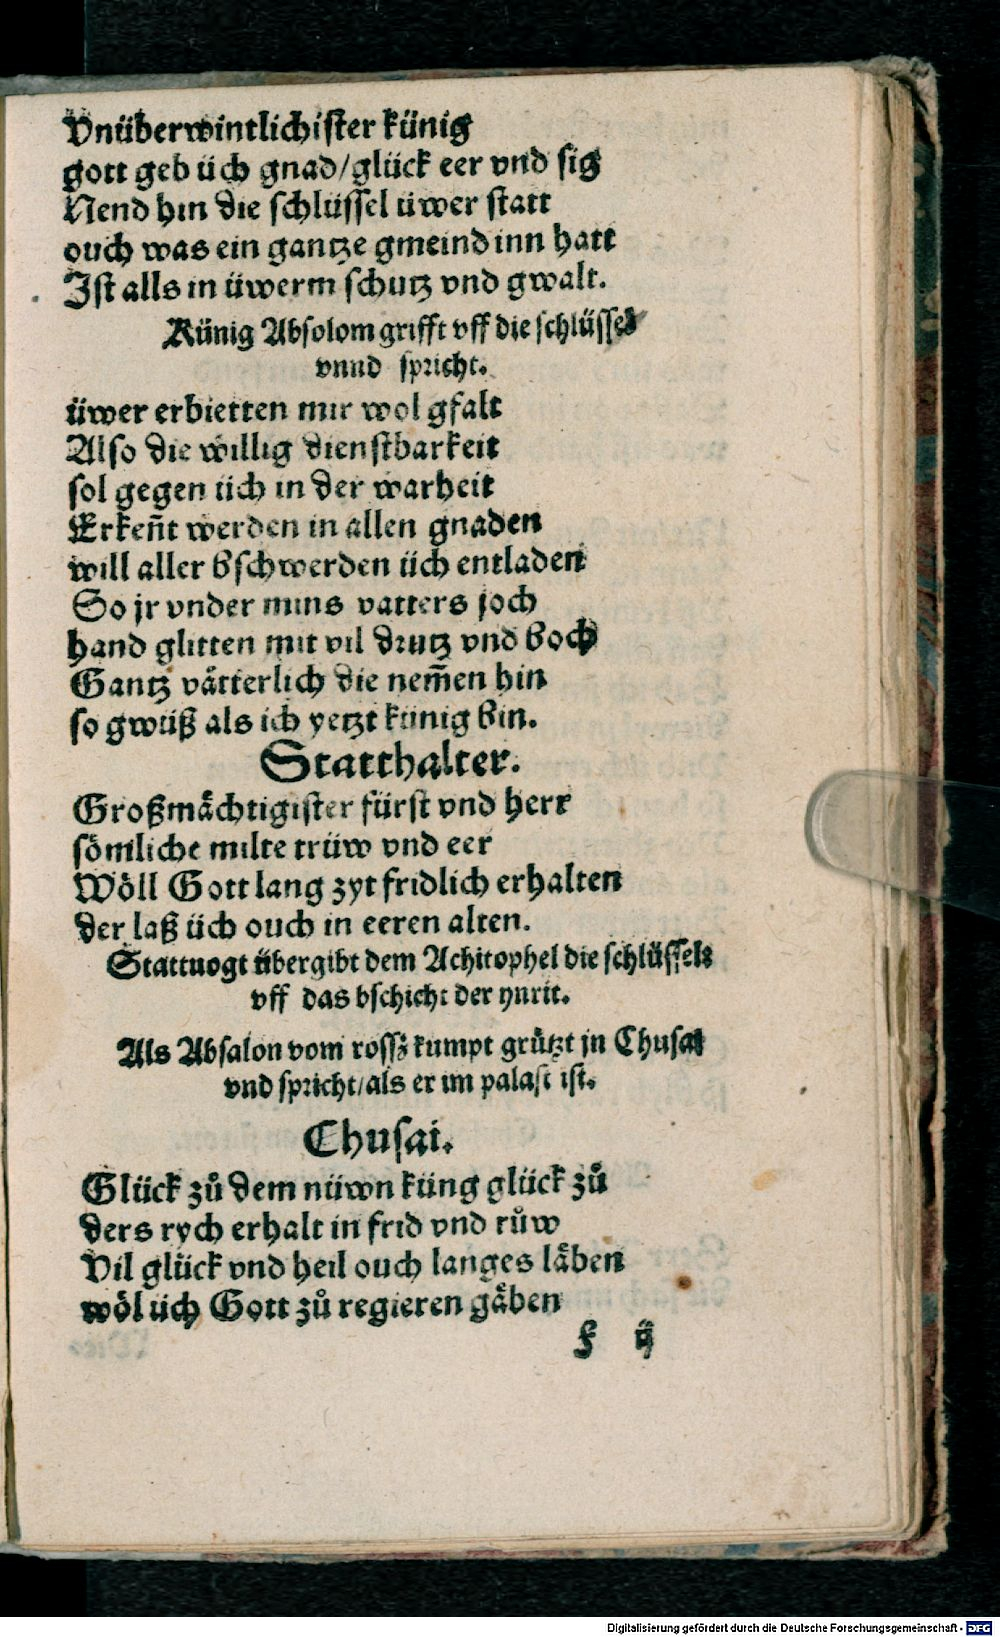 Vnüberwintlichister künig
gott geb üch gnad/glück eer vnd sig
Nend hin die schlüssel üwer statt
ouch was ein gantze gmeind inn hatt
Ist alls in üwerm schutz vnd gwalt.
Künig Absolom grifft vff die schlüssel
vnnd spricht.
üwer erbietten mir wol gfalt
Also die willig dienstbarkeit
sol gegen üch in der warheit
Erkeñt werden in allen gnaden
will aller bschwerden üch entladen
So jr vnder mins vatters joch
hand glitten mit vil drutz vnd boch
Gantz vätterlich die nem̃en hin
so gwüß als ich yetzt künig bin.
Statthalter.
Großmächtigister fürst vnd herr
sömliche milte trüw vnd eer
Wöll Gott lang zyt fridlich erhalten
der laß üch ouch in eeren alten.
Stattuogt übergibt dem Achitophel die schlüssel:
vff das bschicht der ynrit.
Als Absalon vom rossz kumpt grützt jn Chusai
vnd spricht/als er im palast ist.
Chusai.
Glück zů dem nüwn küng glück zů
ders rych erhalt in frid vnd růw
Vil glück vnd heil ouch langes läben
wöl üch Gott zů regieren gäben
f ij
Digitalisierung gefördert durch die Deutsche Forschungsgemeinschaft - DFG